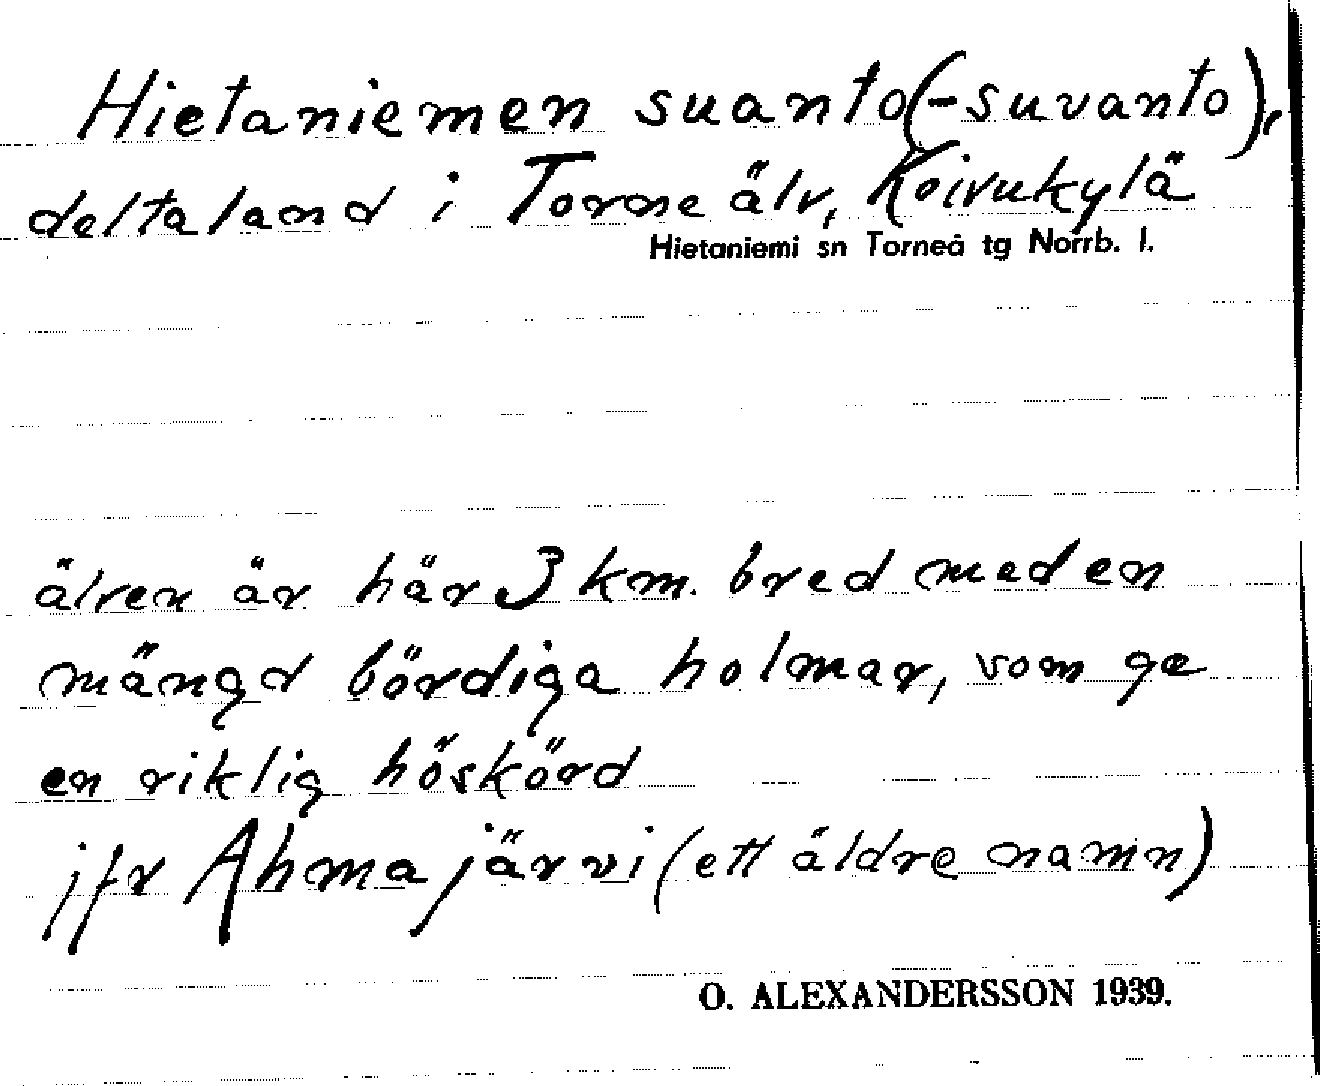 Hietaniemen suanto(-suvanto),
deltaland i Torne älv, Koivukylä
Hietaniemi sn Torneå tg Norrb. l.
älven är här 3 km. bred med en
mängd bördiga holmar, som ge
en riklig höskörd
jfr Ahmajärvi (ett äldre namn)
O. ALEXANDERSSON 1939.